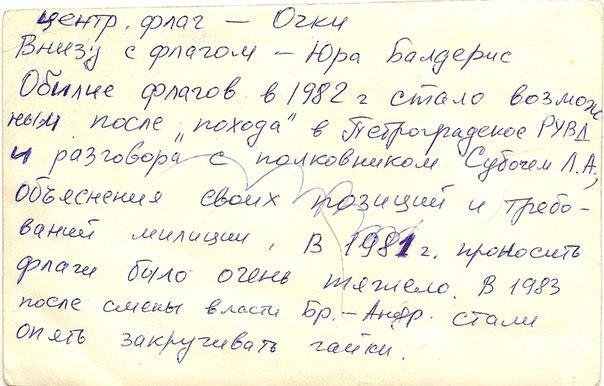 центр. флаг — Очки
Внизу с флагом — Юра Балдерис
Обилие флагов в 1982 г стало возмож
ным после „похода" в Петроградское РУВД
и разговора с полковником Субочем Л.А.,
объяснения своих позиций и требо-
ваний милиции. В 1981 г. проносить
флаги было очень тяжело. В 1983
после смены власти Бр.-Андр. стали
опять закручивать гайки.